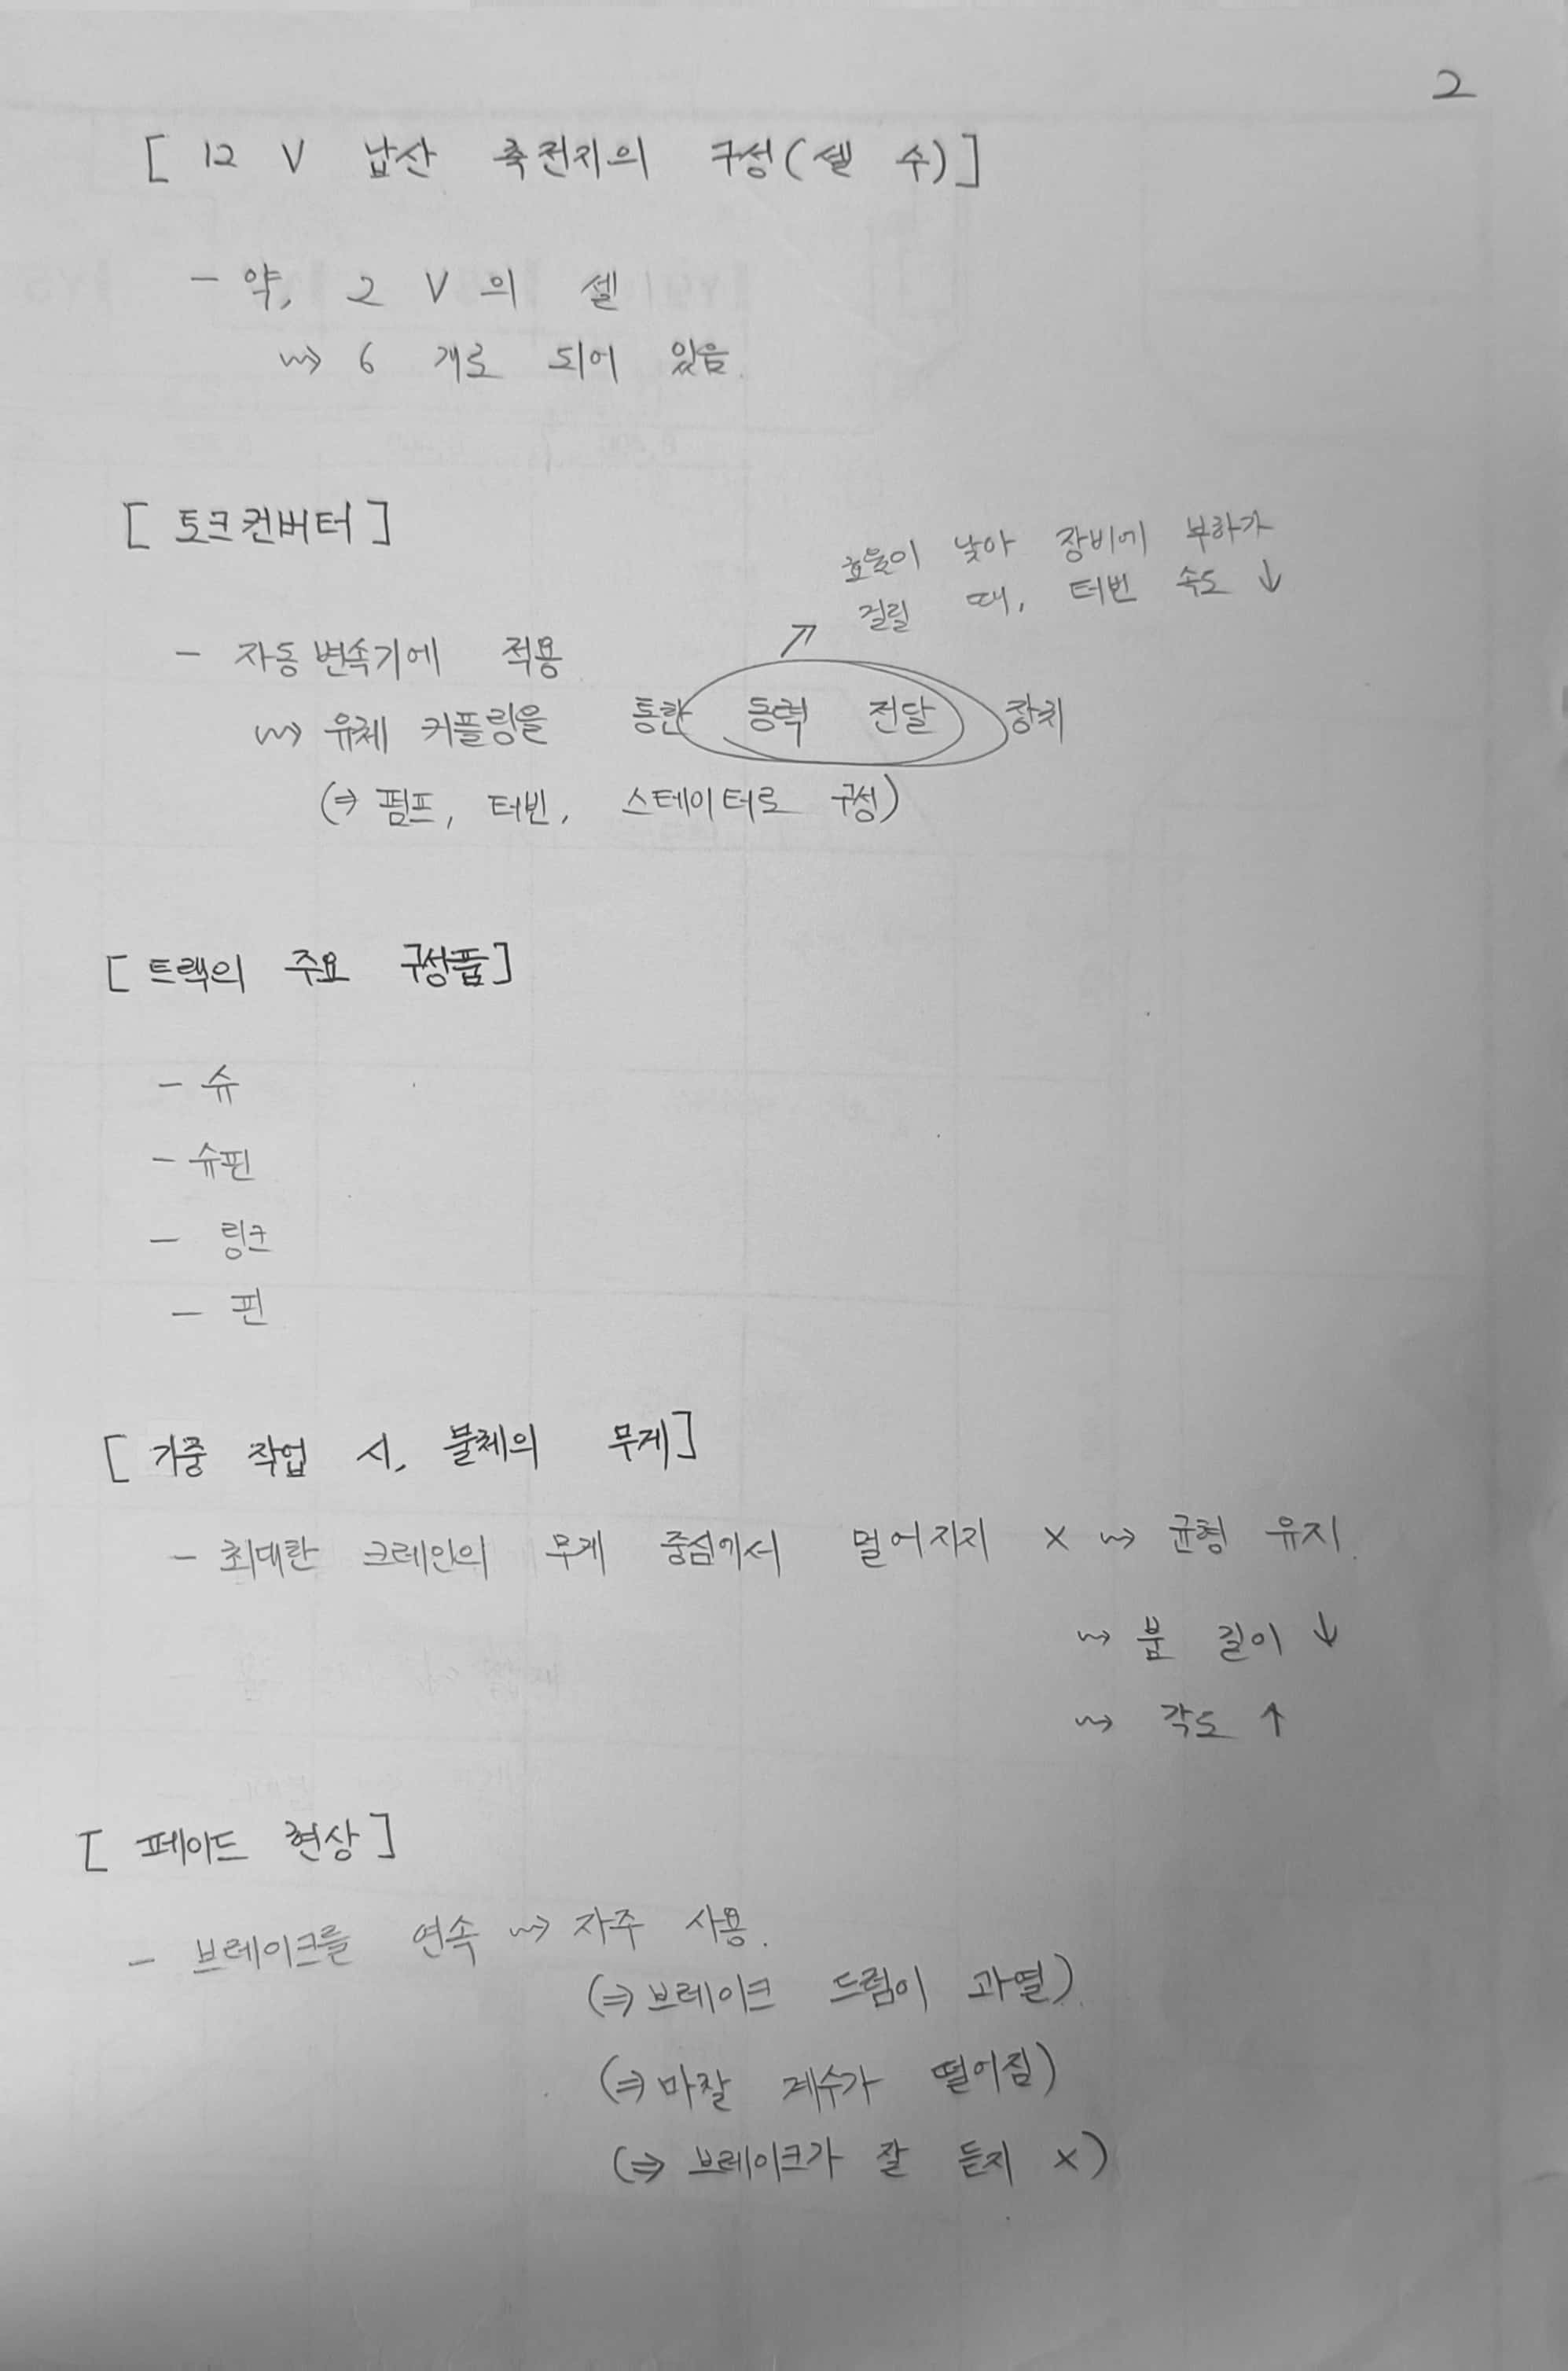 2
[ 12 V 납산 축전지의 구성(셀 수) ]
- 약, 2 V의 셀
⇝ 6 개로 되어 있음.
[ 토크컨버터 ]
효율이 낮아 장비에 부하가
걸릴 때, 터빈 속도 ↓
↗
- 자동변속기에 적용
⇝ 유체 커플링을 통한 동력 전달 장치
(⇒ 펌프, 터빈, 스테이터로 구성)
[ 트랙의 주요 구성품 ]
- 슈
- 슈핀
- 링크
- 핀
[ 기중 작업 시, 물체의 무게 ]
- 최대한 크레인의 무게 중심에서 멀어지지 X ⇝ 균형 유지.
⇝ 붐 길이 ↓
⇝ 각도 ↑
[ 페이드 현상 ]
- 브레이크를 연속 ⇝ 자주 사용.
(⇒ 브레이크 드럼이 과열)
(⇒ 마찰 계수가 떨어짐)
(⇒ 브레이크가 잘 듣지 X)